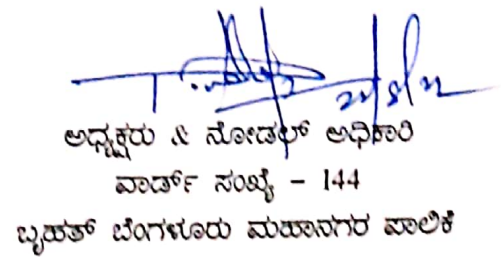 ಅಧ್ಯಕ್ಷರು & ನೋಡಲ್ ಅಧಿಕಾರಿ
ವಾರ್ಡ್ ಸಂಖ್ಯೆ - 144
ಬೃಹತ್ ಬೆಂಗಳೂರು ಮಹಾನಗರ ಪಾಲಿಕೆ